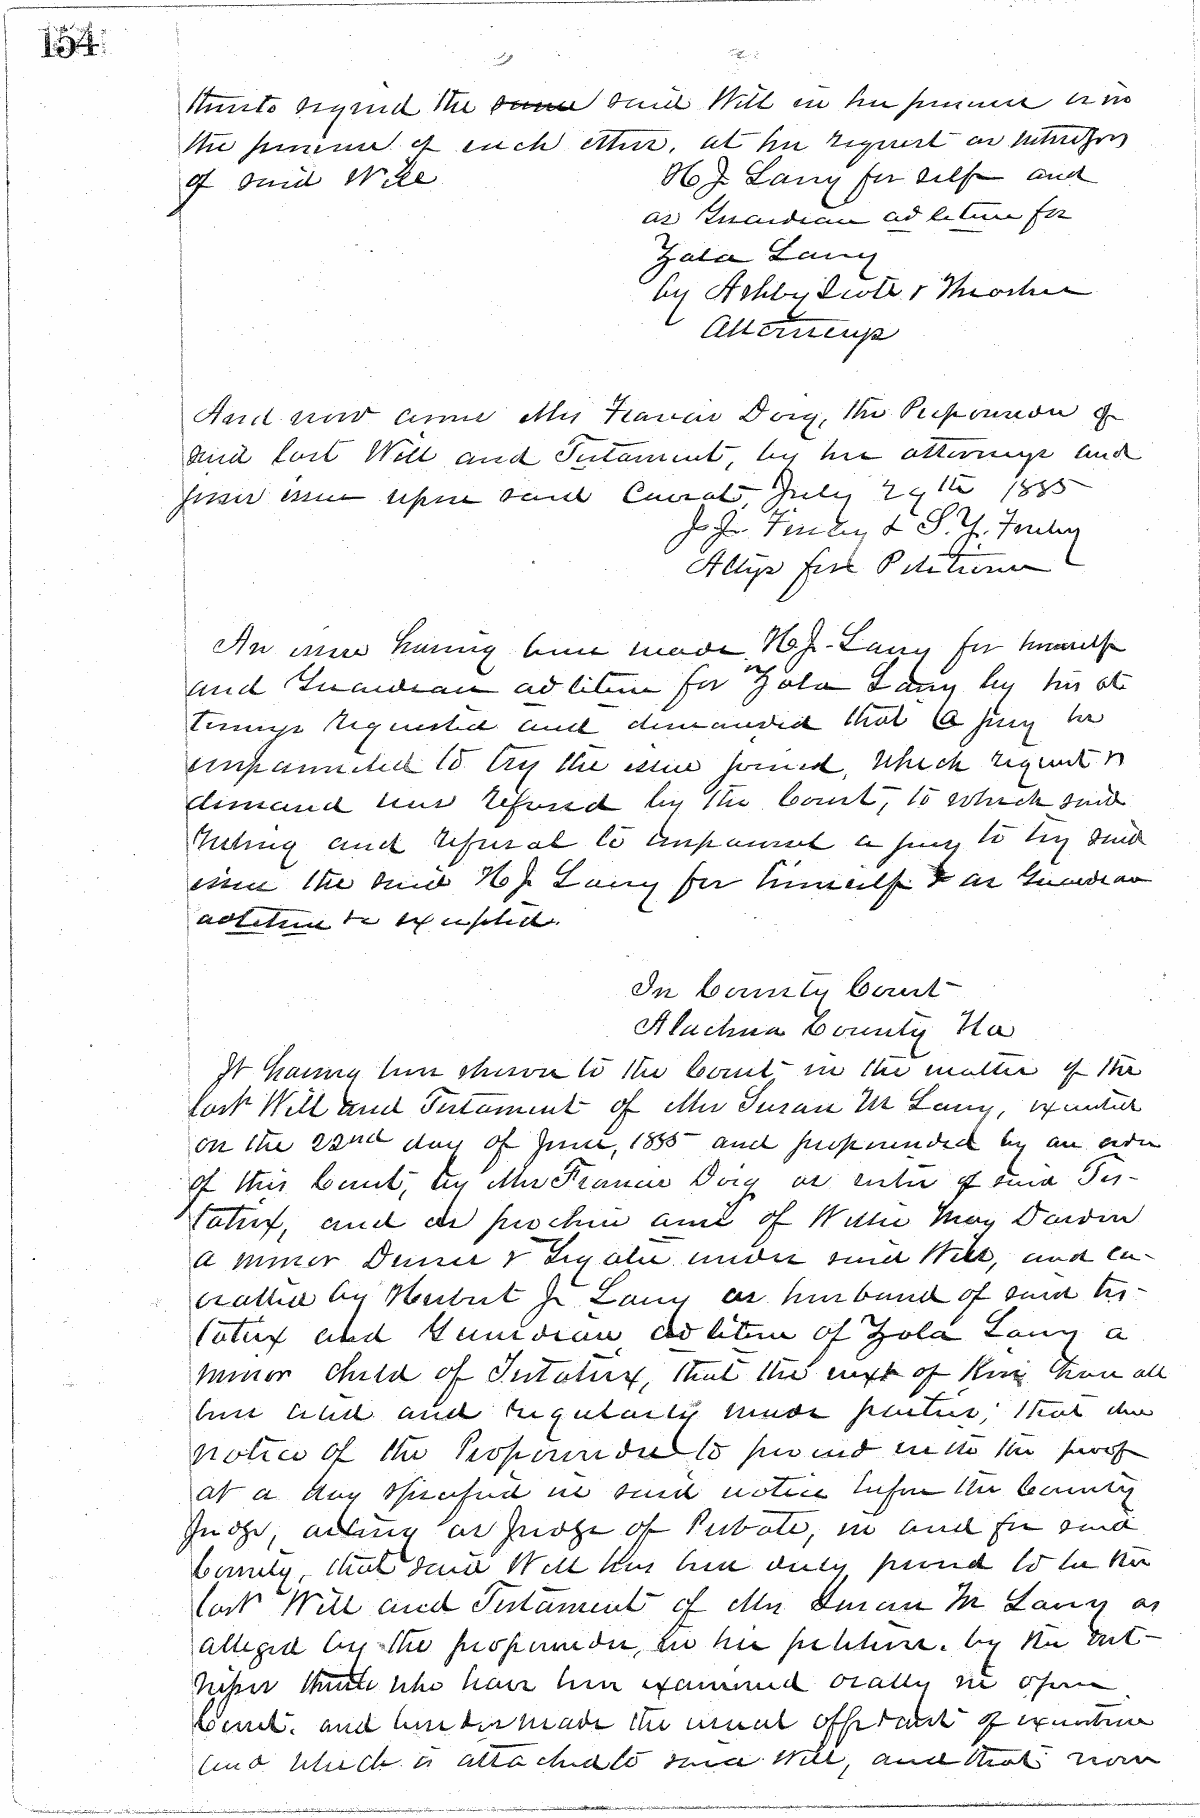 154
thereto signed the same said Will in her presence & in
the presence of each other, at her request as witnesses
of said Will
H J Lang for self and
as Guardian ad litem for
Zola Lang
by Ashby Scott & Thrasher
Attorneys
And now comes Mrs Francis Doig, the Propounder of
said last Will and Testament, by her attorneys and
joins issue upon said Caveat, July 29th 1885
J. J. Finley & S. Y. Finley
Attys for Petitioner
An issue having been made H J Lang for himself
and Guardian ad litem for Zola Lang by his at
torneys requested and demanded that a jury be
empannelled to try the issue joined, which request &
demand was refused by the Court, to which said
ruling and refusal to empannel a jury to try said
issue the said H J Lang for himself & as Guardian
ad litem excepted.
In County Court
Alachua County Fla
It having been shown to the Court in the matter of the
last Will and Testament of Mrs Susan M Lang, executed
on the 22nd day of June, 1885 and propounded by an order
of this Court, by Mrs Francis Doig as sister of said Tes-
tatrix, and as prochein ami of Willie May Darden
a minor Devisee & Legatee under said Will, and ca-
veated by Herbert J Lang as husband of said tes-
tatrix and Guardian ad litem of Zola Lang a
minor child of Testatrix, that the next of Kin have all
been cited and regularly made parties; that due
notice of the Propounder to proceed with the proof
at a day specified in said notice before the County
Judge, acting as Judge of Probate, in and for said
County, that said Will has been duly proved to be the
last Will and Testament of Mrs Susan M Lang as
alleged by the propounder, in her petition. by the wit-
nesses thereto who have been examined orally in open
Court. and have made the usual affidavit of execution
and which is attached to said Will, and that now